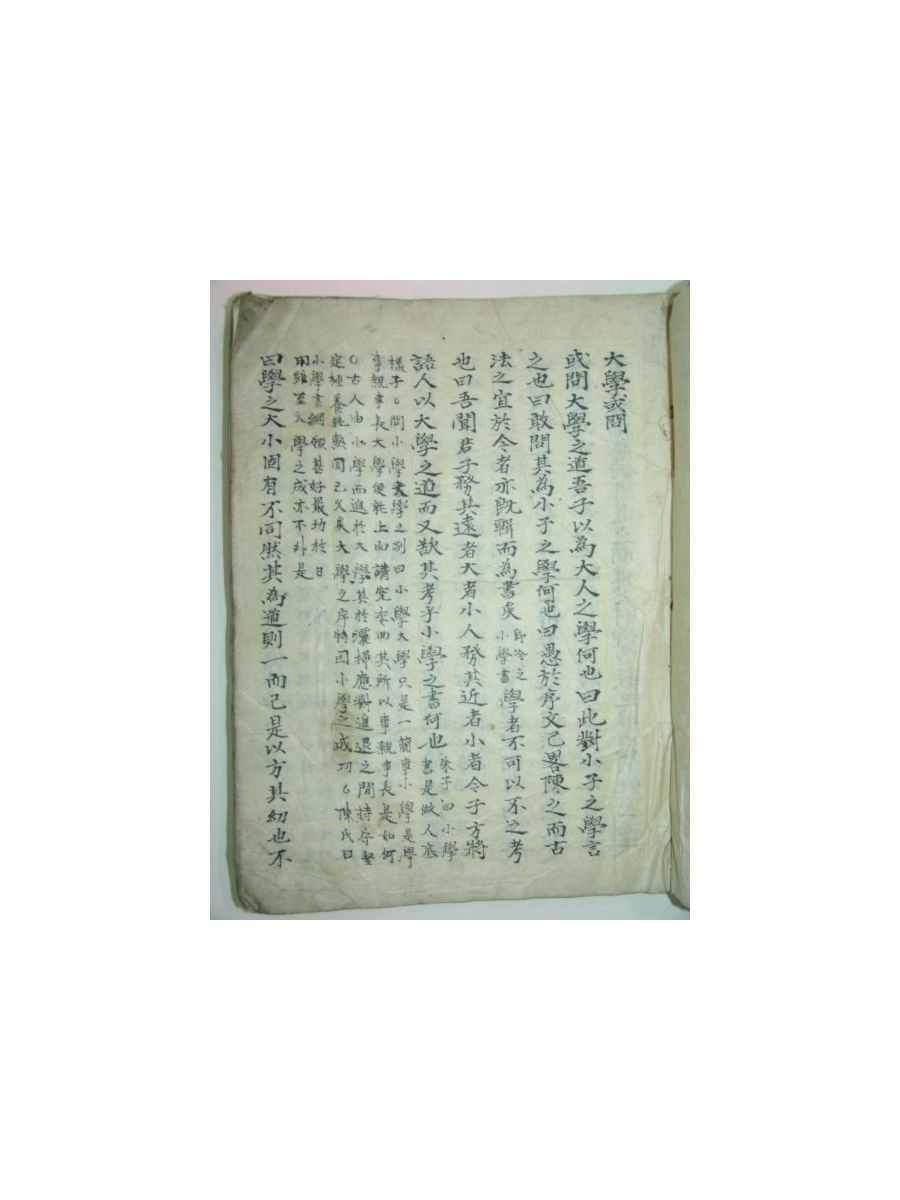 大學或問
或問大學之道吾子以為大人之學何也曰此對小子之學言
之也曰敢問其為小子之學何也曰愚於序文已畧陳之而古
法之宜於今者亦旣輯而為書矣
即今之
小學書
學者不可以不之考
也曰吾聞君子務其遠者大者小人務其近者小者今子方將
語人以大學之道而又欲其考乎小學之書何也
朱子曰小學
書是做人底
樣子○問小學大學之別曰小學大學只是一箇事小學是學
事親事長大學便就上面講究委曲其所以事親事長是如何
○古人由小學而進於大學其於灑掃應對進退之間持守堅
定極養純熟固已久矣大學之序特因小學之成功○陳氏曰
小學書綱領甚好最切於日
用雖至大學之成亦不外是
曰學之大小固有不同然其為道則一而已是以方其幼也不